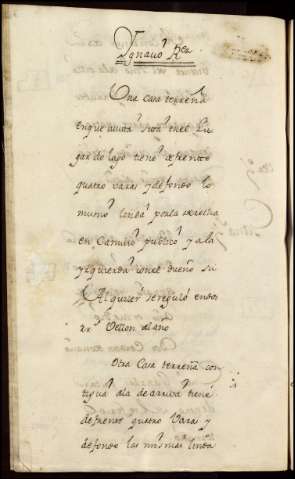 Ygnacio R.ez
Una casa terreña
en que avita situa.a en el Lu
gar de lago tiene de frente
quatro varas y de fondo lo
mismo linda por la derecha
en Camino publico y a la
yzquierda con el dueño su
Alquiler se reguló en dos
rr.s Vellon al año
Otra Casa terreña con
tigua a la de arriva tiene
de frente quatro Varas y
de fondo las mismas linda